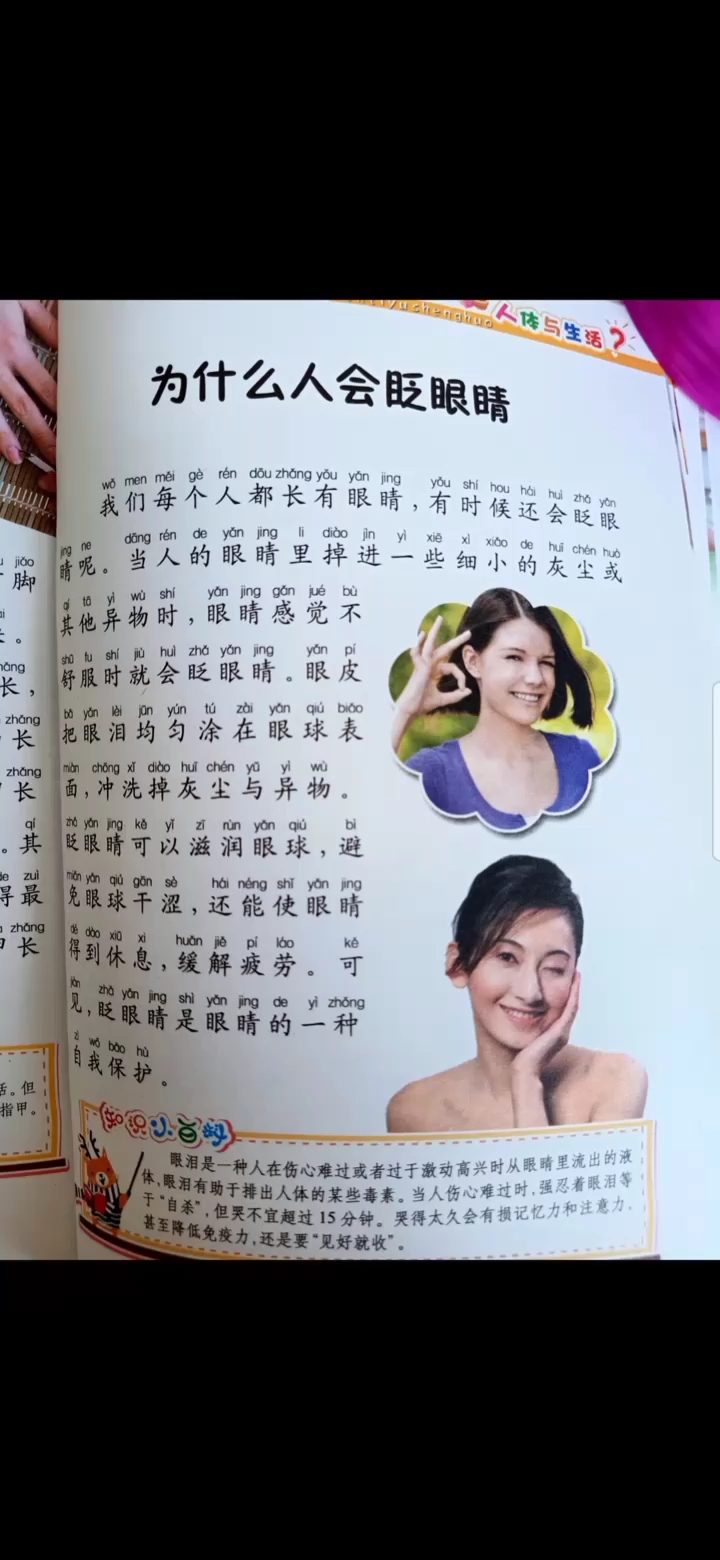 人体与生活?
为什么人会眨眼睛
wǒ men měi gè rén dōu zhǎng yǒu yǎn jing yǒu shí hou hái huì zhǎ yǎn
我们每个人都长有眼睛，有时候还会眨眼
jing ne dāng rén de yǎn jing li diào jìn yì xiē xì xiǎo de huī chén huò
睛呢。当人的眼睛里掉进一些细小的灰尘或
qí tā yì wù shí yǎn jing gǎn jué bù
其他异物时，眼睛感觉不
shū fu shí jiù huì zhǎ yǎn jing yǎn pí
舒服时就会眨眼睛。眼皮
bǎ yǎn lèi jūn yún tú zài yǎn qiú biǎo
把眼泪均匀涂在眼球表
miàn chōng xǐ diào huī chén yǔ yì wù
面，冲洗掉灰尘与异物。
zhǎ yǎn jing kě yǐ zī rùn yǎn qiú bì
眨眼睛可以滋润眼球，避
miǎn yǎn qiú gān sè hái néng shǐ yǎn jing
免眼球干涩，还能使眼睛
dé dào xiū xi huǎn jiě pí láo kě
得到休息，缓解疲劳。可
jiàn zhǎ yǎn jing shì yǎn jing de yì zhǒng
见，眨眼睛是眼睛的一种
zì wǒ bǎo hù
自我保护。
知识小百科
眼泪是一种人在伤心难过或者过于激动高兴时从眼睛里流出的液
体，眼泪有助于排出人体的某些毒素。当人伤心难过时，强忍着眼泪等
于“自杀”，但哭不宜超过15分钟。哭得太久会有损记忆力和注意力，
甚至降低免疫力，还是要“见好就收”。
jiǎo
脚
。
长，
zhǎng
长
zhǎng
长
qí
。其
de zuì
得最
zhǎng
长
活。但
指甲。